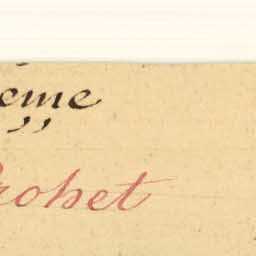 eme
,,
rohet